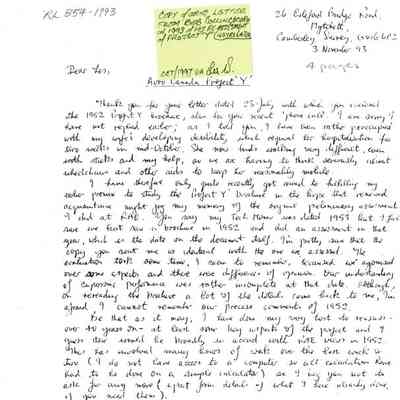 RL 557-1993
COPY of ORIG LETTER
FROM
of 1993
of PROJECT Y
26 Bideford
Mytchett
Camberley, Surrey,
3 November 93
4 pages
Dear Les,
OCT/1997
Les S.
Avro Canada Project 'Y'
Thank you for your letter dated 25 July, with which you enclosed
the 1952 Project Y brochure, also for your recent 'phone call'. I am sorry I
have not replied earlier; as I told you, I have been rather preoccupied
with my wife's developing disability, which required her hospitalisation for
two weeks in mid-October. She now finds walking very difficult, even
with sticks and my help, so we are having to think seriously about
wheelchairs and other aids to keep her reasonably mobile.
I have therefore only quite recently got round to fulfilling my
earlier promise to study the Project Y brochure in the hope that renewed
acquaintance might jog my memory of the original preliminary assessment
I did at RAE. You say my Tech Memo was dated 1953 but I
sure we first saw a brochure in 1952 and did an assessment in that
year, which is the date on the document itself. I'm pretty sure that the
copy you sent me is identical with the one we assessed. The
evaluation took some time, I seem to remember, because we agonised
over some aspects and there were differences of opinion. Our understanding
of supersonic performance was rather incomplete at that date. Although,
on rereading the brochure a lot of the details came back to me, I'm
afraid I cannot remember our precise comments of 1952.
Be that as it may, I have done my very best to reassess
over 40 years on - at least some key aspects of the project and I
guess these would be broadly in accord with RAE views in 1952.
This has involved many hours of work over the last week or
two (I do not have access to a computer so all calculations have
had to be done on a simple calculator) so I beg you not to
ask for any more (apart from details of what I have already done,
if you need them).